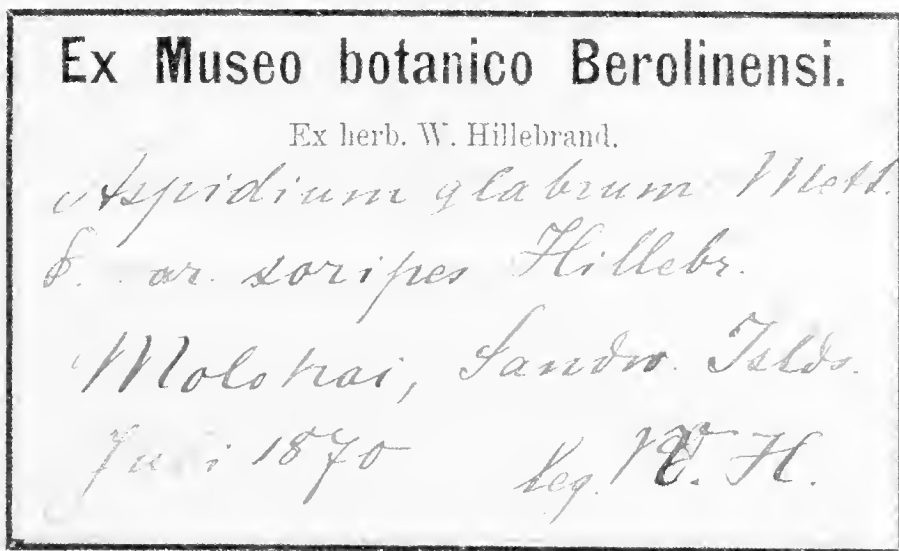 Ex Museo botanico Berolinensi.
Ex herb. W. Hillebrand.
Aspidium glabrum Mett.
var. soripes Hillebr.
Molokai, Sandw. Islds.
1870 leg. W. H.